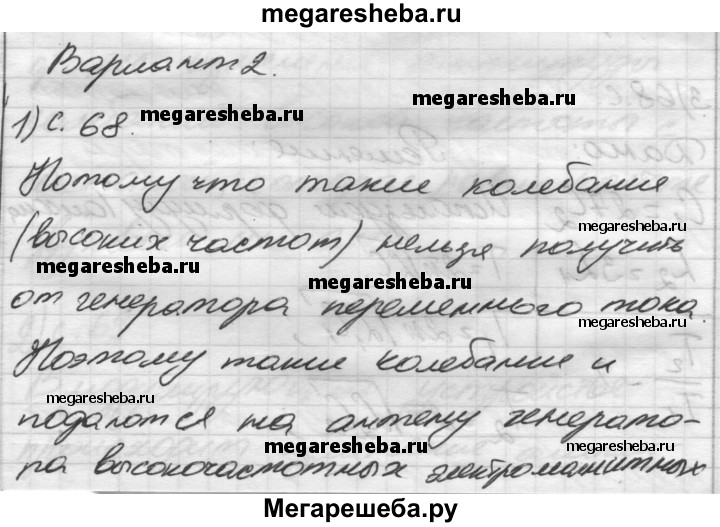 megaresheba.ru
Вариант 2.
megaresheba.ru
megaresheba.ru
1) с. 68.
megaresheba.ru
Потому что такие колебания
megaresheba.ru
(высоких частот) нельзя получить
megaresheba.ru
megaresheba.ru
от генератора переменного тока.
megaresheba.ru
Поэтому такие колебания и
megaresheba.ru
подаются на антену генерато-
megaresheba.ru
megaresheba.ru
ра высокочастотных электромагнитных
Мегарешеба.ру